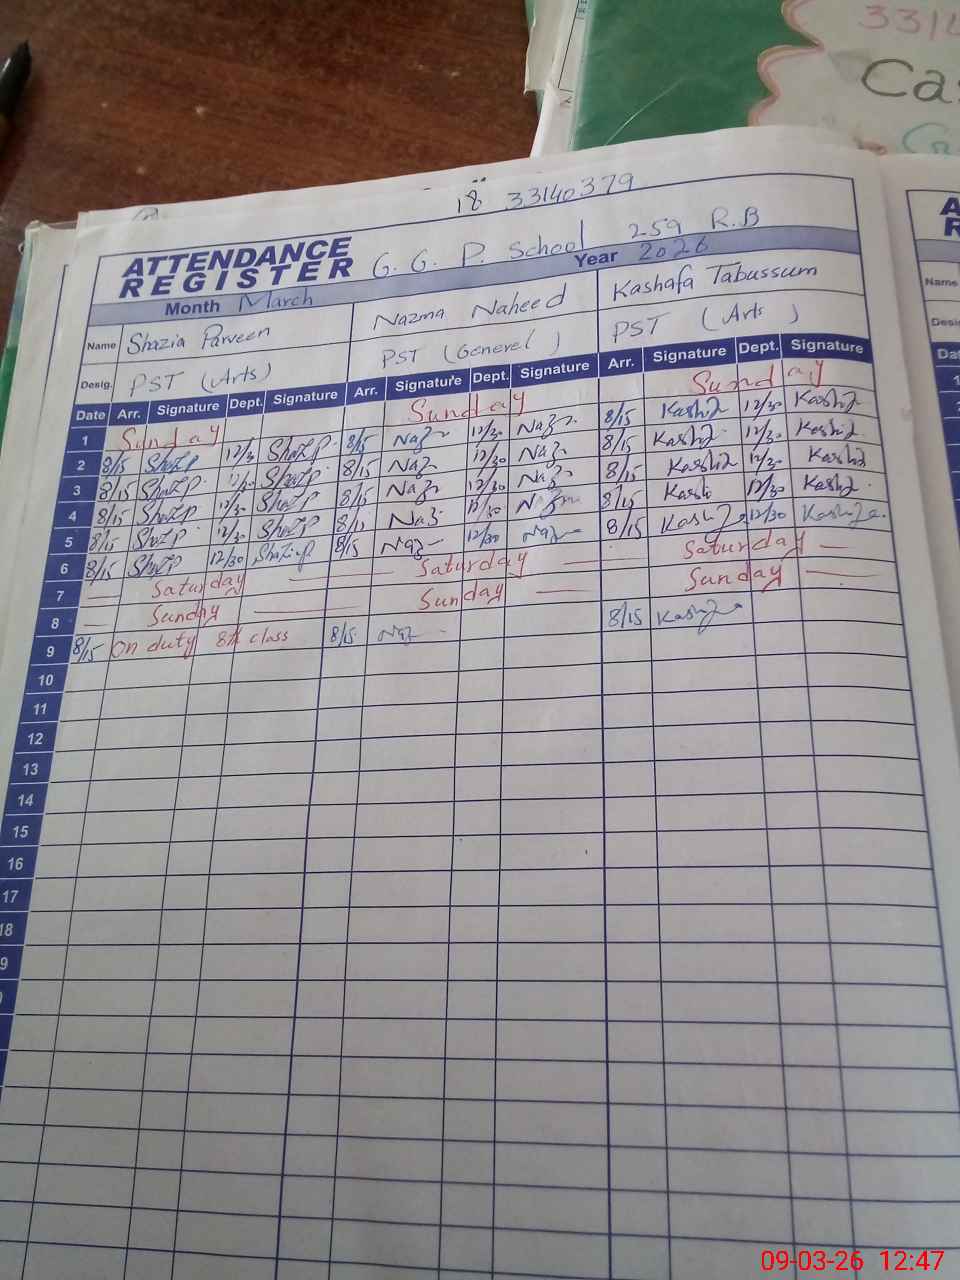 18 33140379
ATTENDANCE REGISTER G. G. P. School 259 R.B
Month March Year 2026
Name Shazia Parveen Nazma Naheed Kashafa Tabussum
Desig. PST (Arts) PST (Generel) PST (Arts)
Date Arr. Signature Dept. Signature Arr. Signature Dept. Signature Arr. Signature Dept. Signature
1 Sunday Sunday Sunday
2 8/15 ShaZP 12/30 ShaZP 8/15 Naz 12/30 Naz 8/15 Kashif 12/30 Kashif
3 8/15 ShaZP 12/30 ShaZP 8/15 Naz 12/30 Naz 8/15 Kashif 12/30 Kashif
4 8/15 ShaZP 12/30 ShaZP 8/15 Naz 12/30 Naz 8/15 Kashif 12/30 Kashif
5 8/15 ShaZP 12/30 ShaZP 8/15 Naz 12/30 8/15 12/30
6 8/15 ShaZP 12/30 8/15 Naz 12/30 Naz 8/15 12/30
7 Saturday Saturday Saturday
8 Sunday Sunday Sunday
9 8/15 On duty 8th class 8/15 Naz 8/15
10
11
12
13
14
15
16
17
18
33140
Cas
09-03-26 12:47